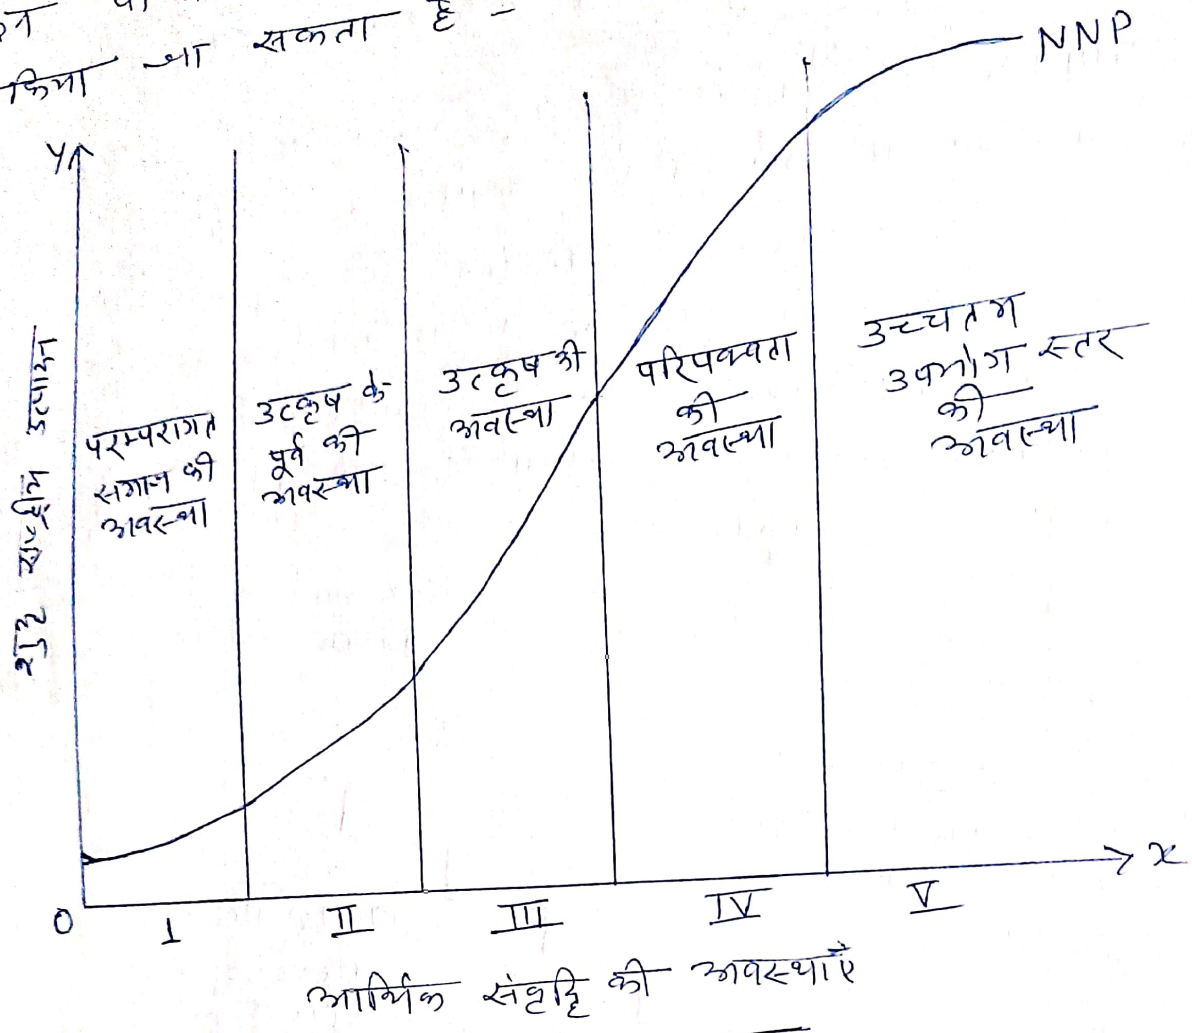 किया जा सकता है -
NNP
Y
शुद्ध राष्ट्रीय उत्पादन
परम्परागत
समाज की
अवस्था
उत्कृष के
पूर्व की
अवस्था
उत्कृष की
अवस्था
परिपक्वता
की
अवस्था
उच्चतम
उपभोग स्तर
की
अवस्था
0
I
II
III
IV
V
x
आर्थिक संवृद्धि की अवस्थाएँ